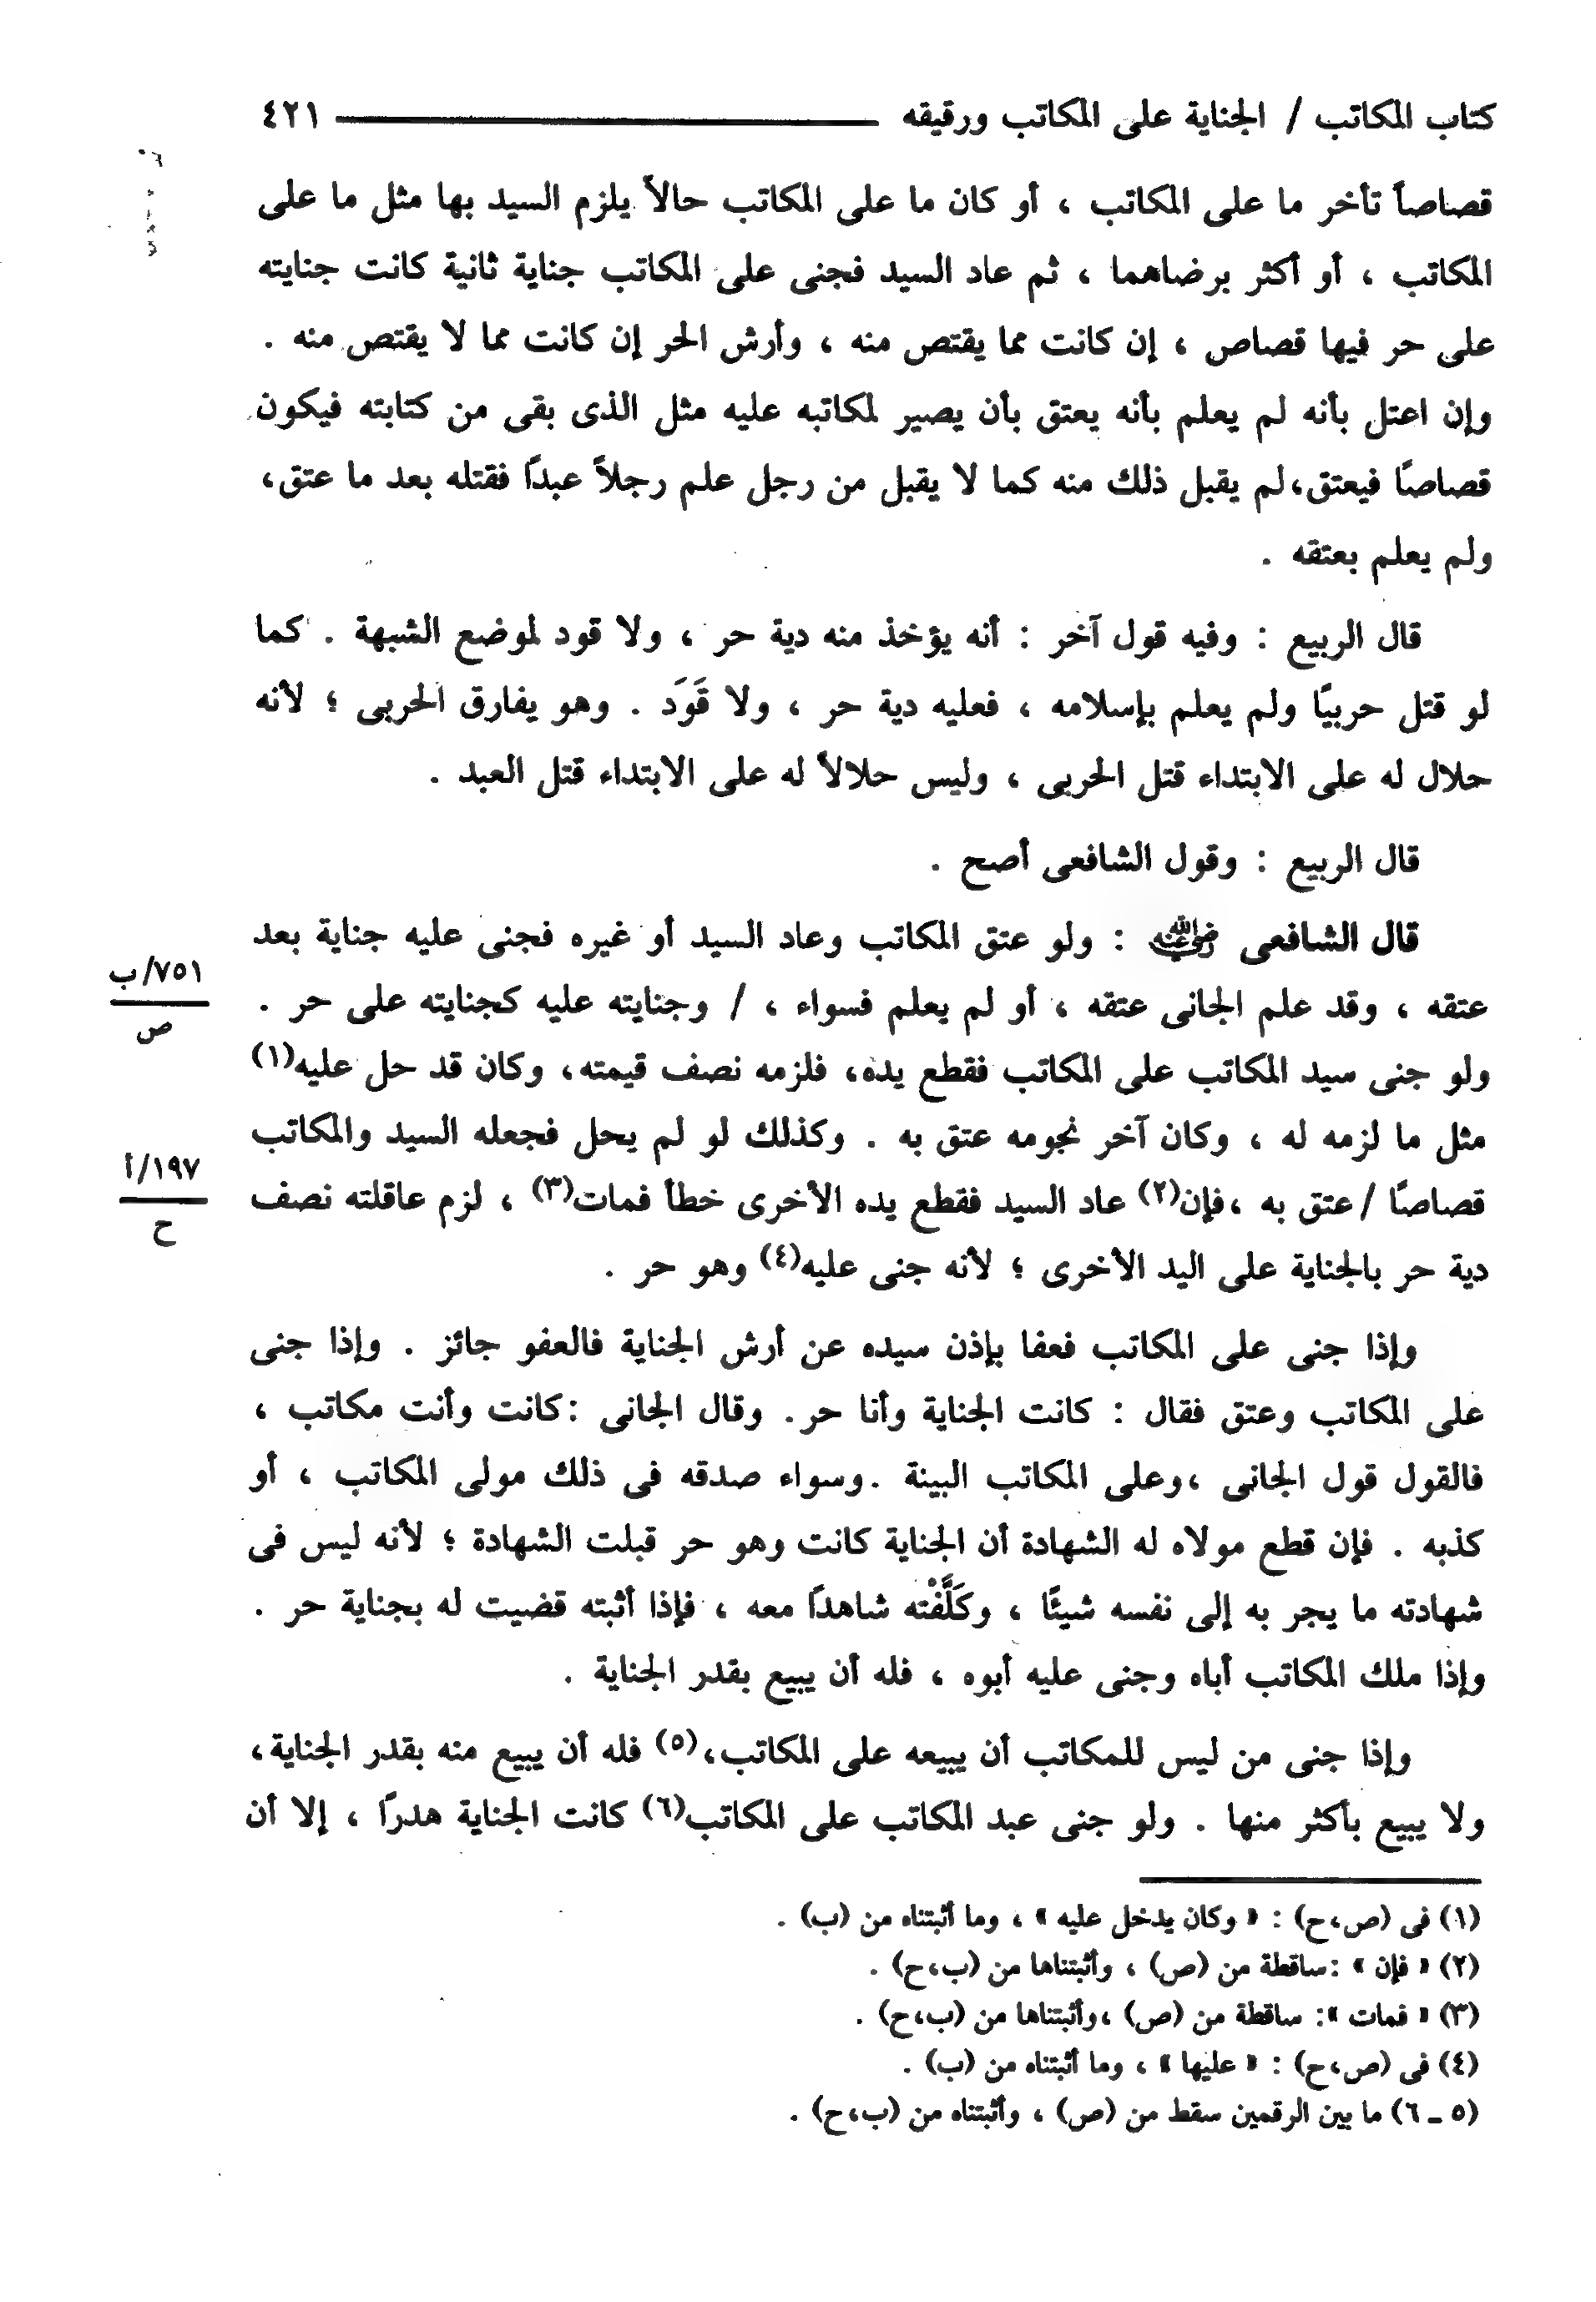 كتاب المكاتب / الجناية على المكاتب ورقيقه ـــــــــ ٤٢١
قصاصاً تأخر ما على المكاتب ، أو كان ما على المكاتب حالاً يلزم السيد بها مثل ما على
المكاتب ، أو أكثر برضاهما ، ثم عاد السيد فجنى على المكاتب جناية ثانية كانت جنايته
على حر فيها قصاص ، إن كانت مما يقتص منه ، وأرش الحر إن كانت مما لا يقتص منه .
وإن اعتل بأنه لم يعلم بأنه يعتق بأن يصير لمكاتبه عليه مثل الذى بقى من كتابته فيكون
قصاصًا فيعتق،لم يقبل ذلك منه كما لا يقبل من رجل علم رجلاً عبدًا فقتله بعد ما عتق،
ولم يعلم بعتقه .
قال الربيع : وفيه قول آخر : أنه يؤخذ منه دية حر ، ولا قود لموضع الشبهة . كما
لو قتل حربيًا ولم يعلم بإسلامه ، فعليه دية حر ، ولا قَوَد . وهو يفارق الحربى ؛ لأنه
حلال له على الابتداء قتل الحربى ، وليس حلالاً له على الابتداء قتل العبد .
قال الربيع : وقول الشافعى أصح .
قال الشافعى رضي الله عنه : ولو عتق المكاتب وعاد السيد أو غيره فجنى عليه جناية بعد
عتقه ، وقد علم الجانى عتقه ، أو لم يعلم فسواء ، / وجنايته عليه كجنايته على حر .
٧٥١/ب
ص
ولو جنى سيد المكاتب على المكاتب فقطع يده، فلزمه نصف قيمته، وكان قد حل عليه(١)
مثل ما لزمه له ، وكان آخر نجومه عتق به . وكذلك لو لم يحل فجعله السيد والمكاتب
قصاصًا / عتق به ،فإن(٢) عاد السيد فقطع يده الأخرى خطأ فمات(٣) ، لزم عاقلته نصف
١٩٧/أ
ح
دية حر بالجناية على اليد الأخرى ؛ لأنه جنى عليه(٤) وهو حر .
وإذا جنى على المكاتب فعفا بإذن سيده عن أرش الجناية فالعفو جائز . وإذا جنى
على المكاتب وعتق فقال : كانت الجناية وأنا حر. وقال الجانى :كانت وأنت مكاتب ،
فالقول قول الجانى ،وعلى المكاتب البينة .وسواء صدقه فى ذلك مولى المكاتب ، أو
كذبه . فإن قطع مولاه له الشهادة أن الجناية كانت وهو حر قبلت الشهادة ؛ لأنه ليس فى
شهادته ما يجر به إلى نفسه شيئًا ، وكَلَّفْته شاهدًا معه ، فإذا أثبته قضيت له بجناية حر .
وإذا ملك المكاتب أباه وجنى عليه أبوه ، فله أن يبيع بقدر الجناية .
وإذا جنى من ليس للمكاتب أن يبيعه على المكاتب،(٥) فله أن يبيع منه بقدر الجناية،
ولا يبيع بأكثر منها . ولو جنى عبد المكاتب على المكاتب(٦) كانت الجناية هدرًا ، إلا أن
(١) فى (ص،ح) : « وكان يدخل عليه » ، وما أثبتناه من (ب) .
(٢) « فإن » :ساقطة من (ص) ، وأثبتناها من (ب،ح) .
(٣) « فمات »: ساقطة من (ص) ،وأثبتناها من (ب،ح) .
(٤) فى (ص،ح) : « عليها » ، وما أثبتناه من (ب) .
(٥ ـ ٦) ما بين الرقمين سقط من (ص) ، وأثبتناه من (ب،ح) .